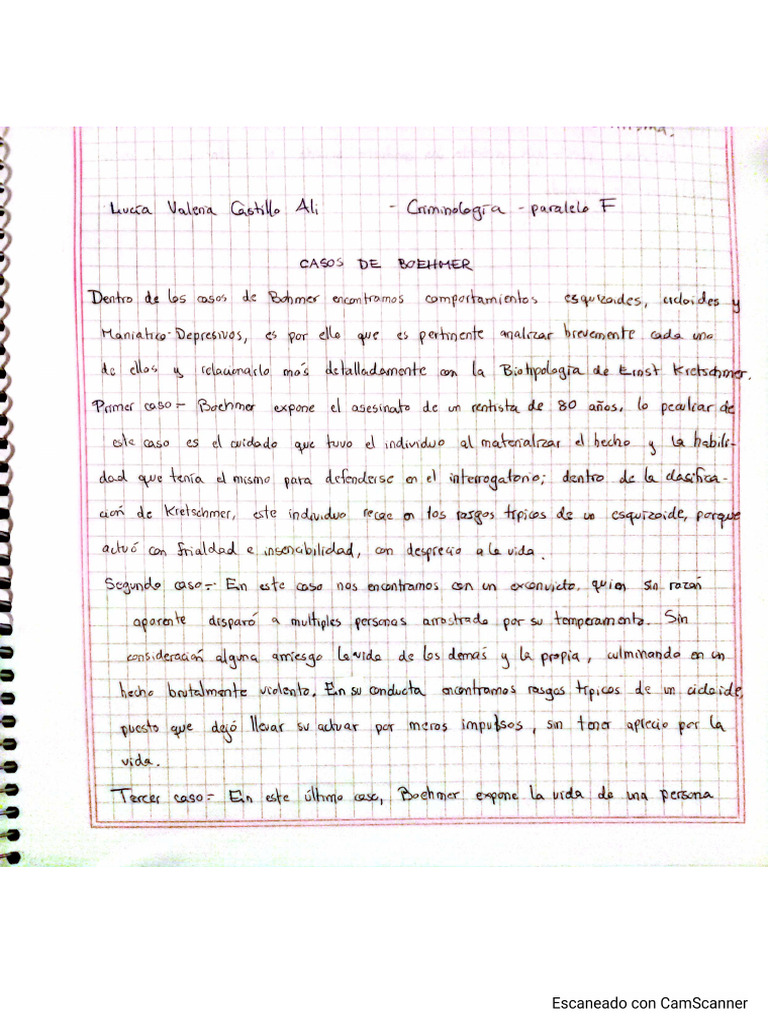 Lucía Valeria Castillo Ali - Criminología - paralelo F
CASOS DE BOEHMER
Dentro de los casos de Bohmer encontramos comportamientos esquizoides, cicloides y
Maniatico-Depresivos, es por ello que es pertinente analizar brevemente cada uno
de ellos y relacionarlo más detalladamente con la Biotipología de Ernst Kretschmer.
Primer caso.- Boehmer expone el asesinato de un rentista de 80 años, lo peculiar de
este caso es el cuidado que tuvo el individuo al materializar el hecho y la habili-
dad que tenía el mismo para defenderse en el interrogatorio; dentro de la clasifica-
ción de Kretschmer, este individuo recae en los rasgos típicos de un esquizoide, porque
actuó con frialdad e insensibilidad, con desprecio a la vida.
Segundo caso.- En este caso nos encontramos con un exconvicto, quien sin razón
aparente disparó a multiples personas arrastrado por su temperamento. Sin
consideración alguna arriesgo la vida de los demás y la propia, culminando en un
hecho brutalmente violento. En su conducta encontramos rasgos típicos de un cicloide,
puesto que dejó llevar su actuar por meros impulsos, sin tener aprecio por la
vida.
Tercer caso.- En este último caso, Boehmer expone la vida de una persona
Escaneado con CamScanner